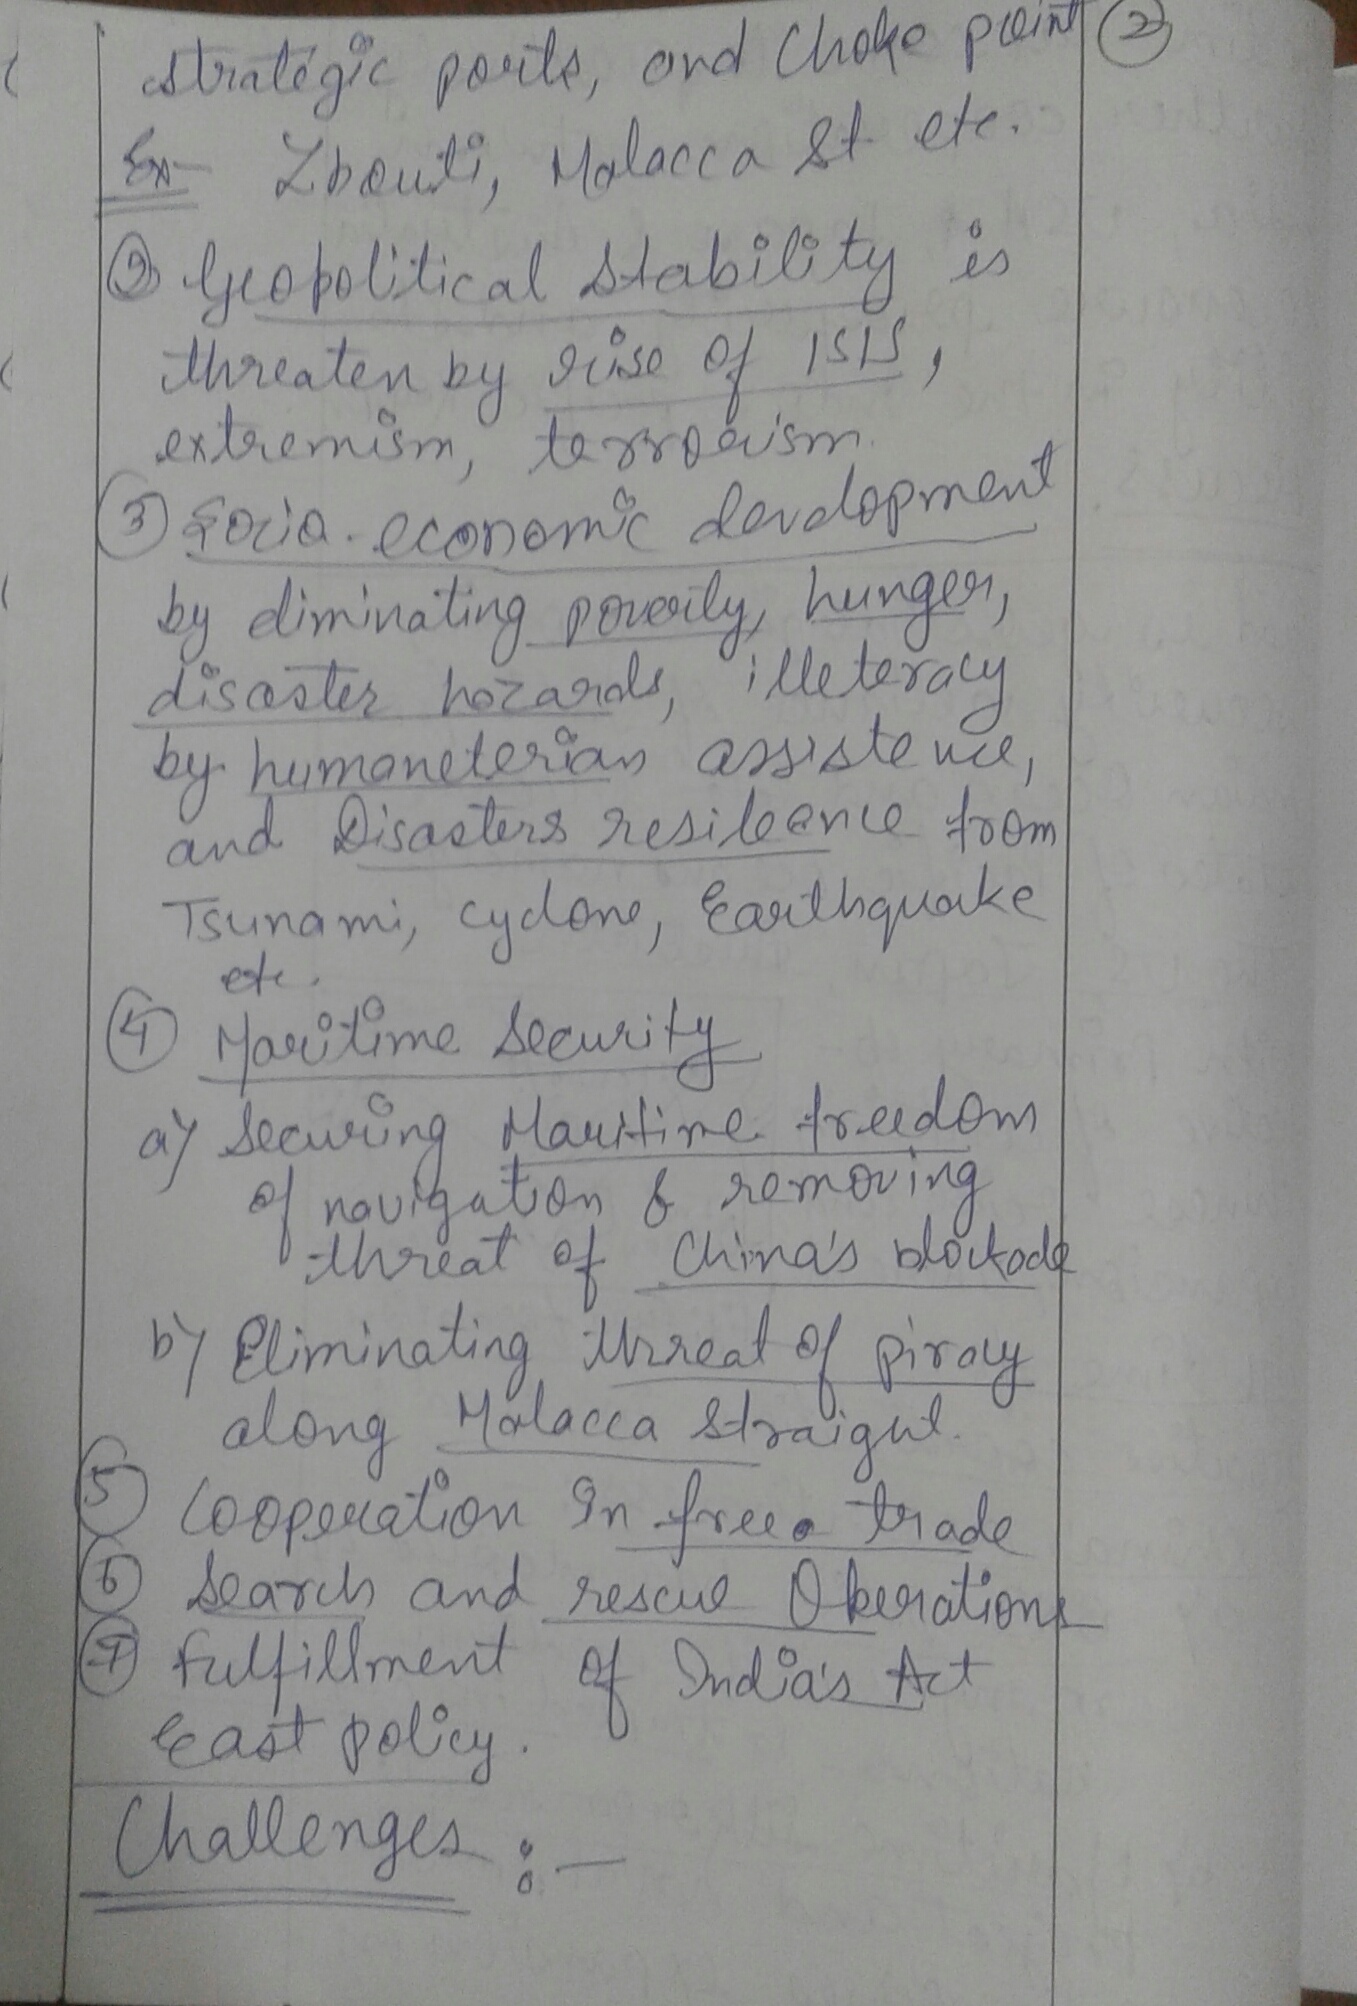 strategic ports, and Choke point
②
Ex- Zbouti, Malacca St. etc.
② Geopolitical Stability is
threaten by rise of ISIS,
extremism, terrorism.
③ Socio-economic development
by eliminating poverty, hunger,
disaster hazards, illeteracy
by humaneterian assistence,
and Disasters resileence from
Tsunami, cyclone, Earthquake
etc.
④ Maritime Security
a) Securing Maritime freedom
of navigation & removing
threat of China's blockade
b) Eliminating threat of piracy
along Malacca Straight.
⑤ Cooperation In free trade
⑥ Search and rescue Operations
⑦ Fulfillment of India's Act
East policy.
Challenges :-